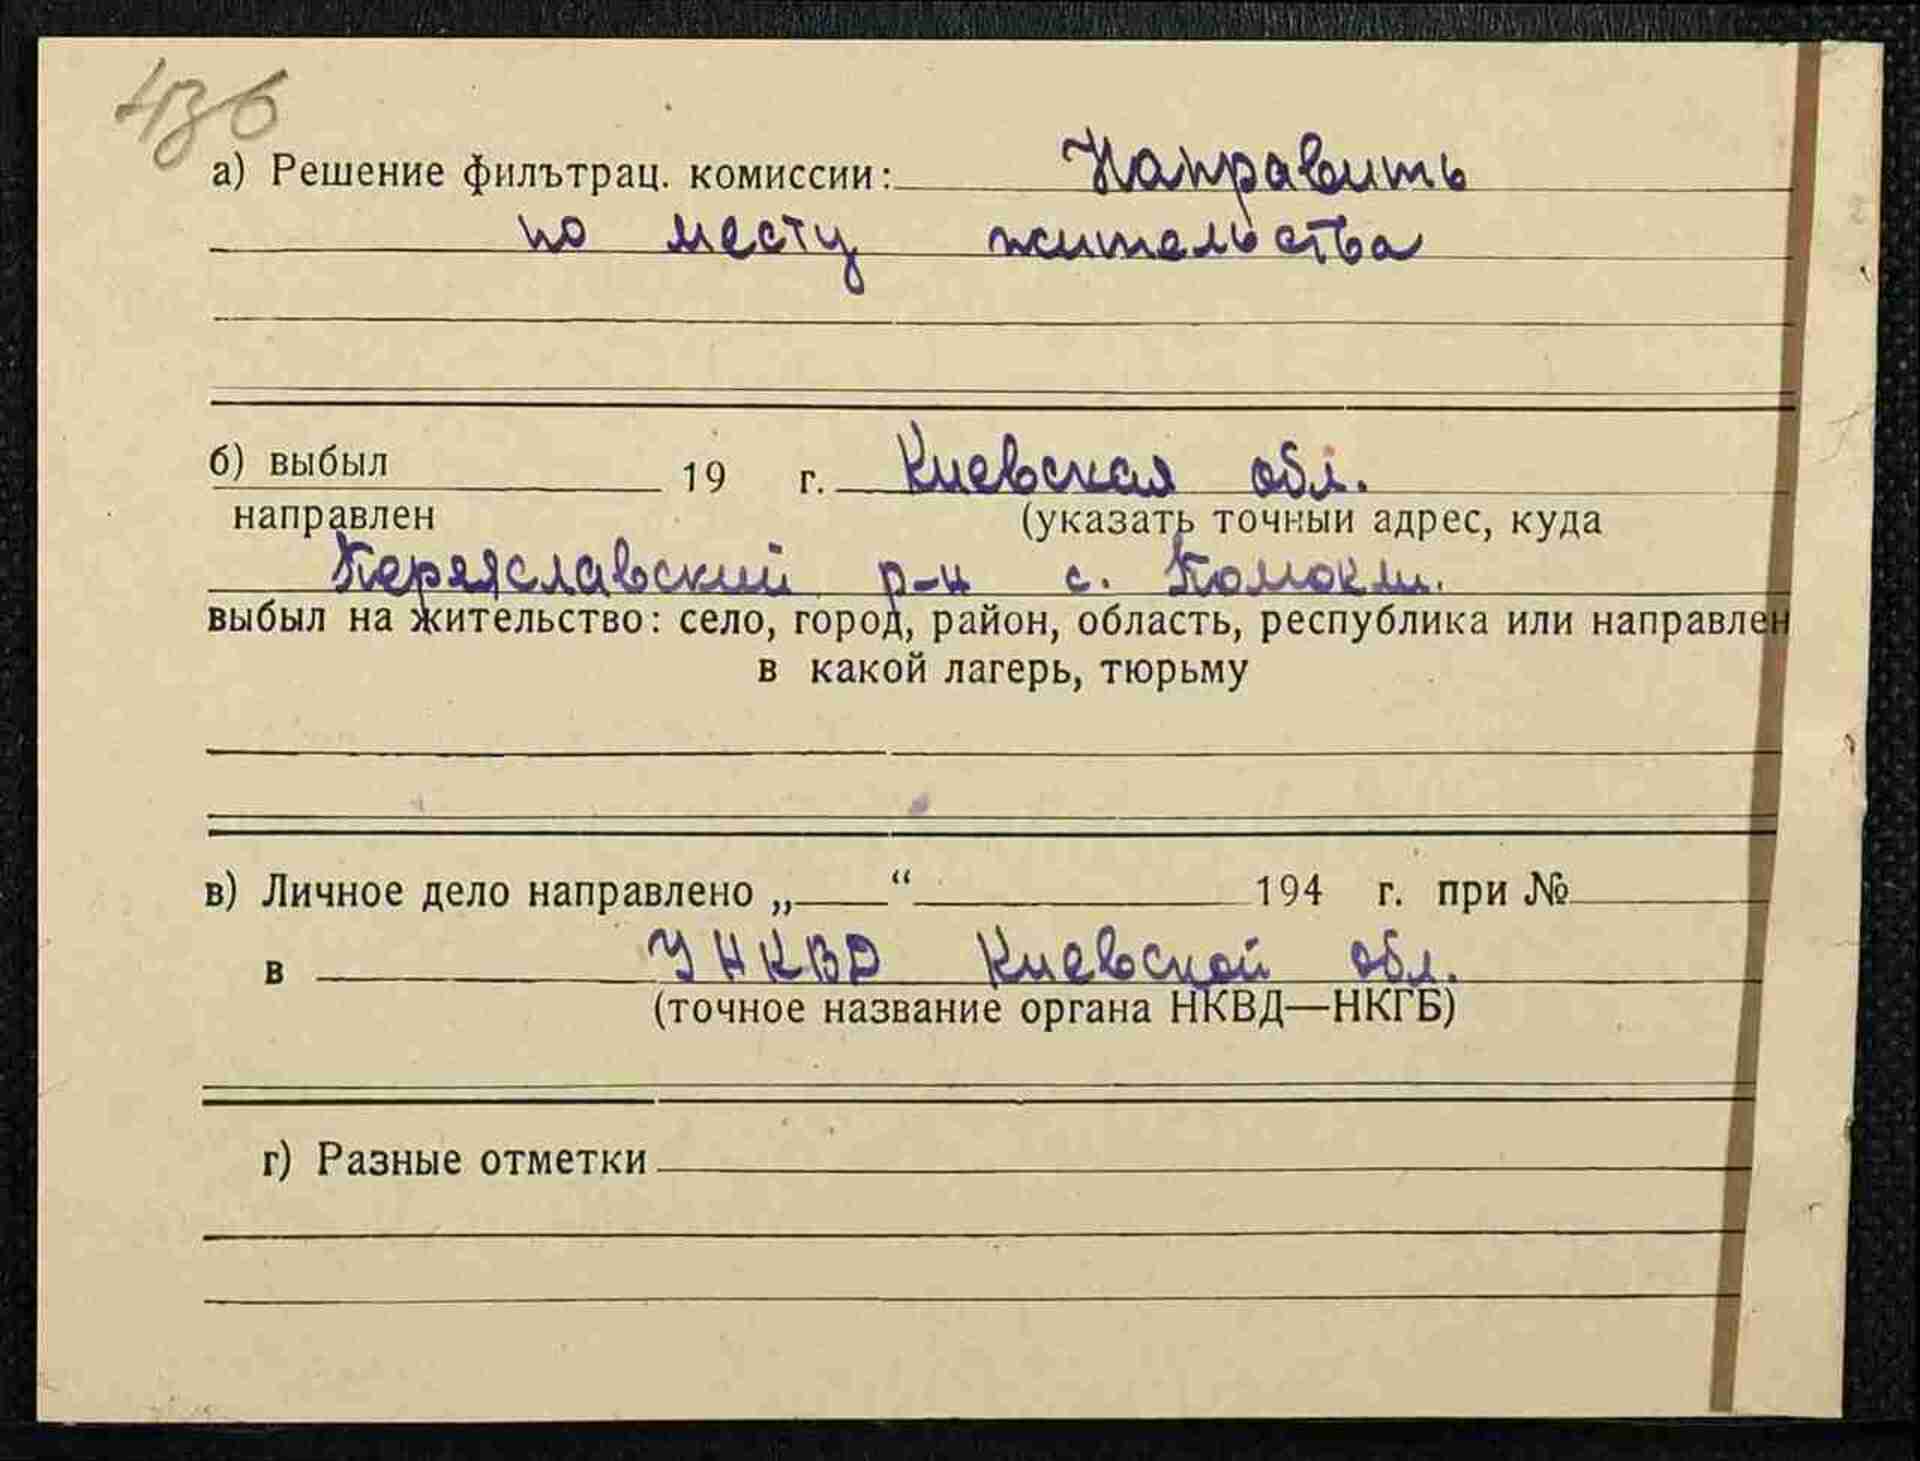 436
а) Решение филътрац. комиссии: Направить
по месту жительства
б) выбыл 19 г. Киевская обл.
направлен (указать точныи адрес, куда
Переяславский р-н с. Помокли.
выбыл на жительство: село, город, район, область, республика или направлен
в какой лагерь, тюрьму
в) Личное дело направлено „ “ 194 г. при №
в УНКВД Киевской обл.
(точное название органа НКВД—НКГБ)
г) Разные отметки